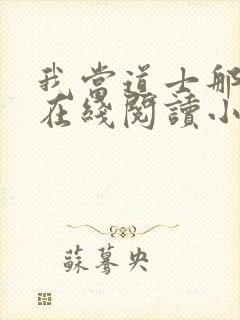 我當道士那
在綫閱讀小
蘇驀央